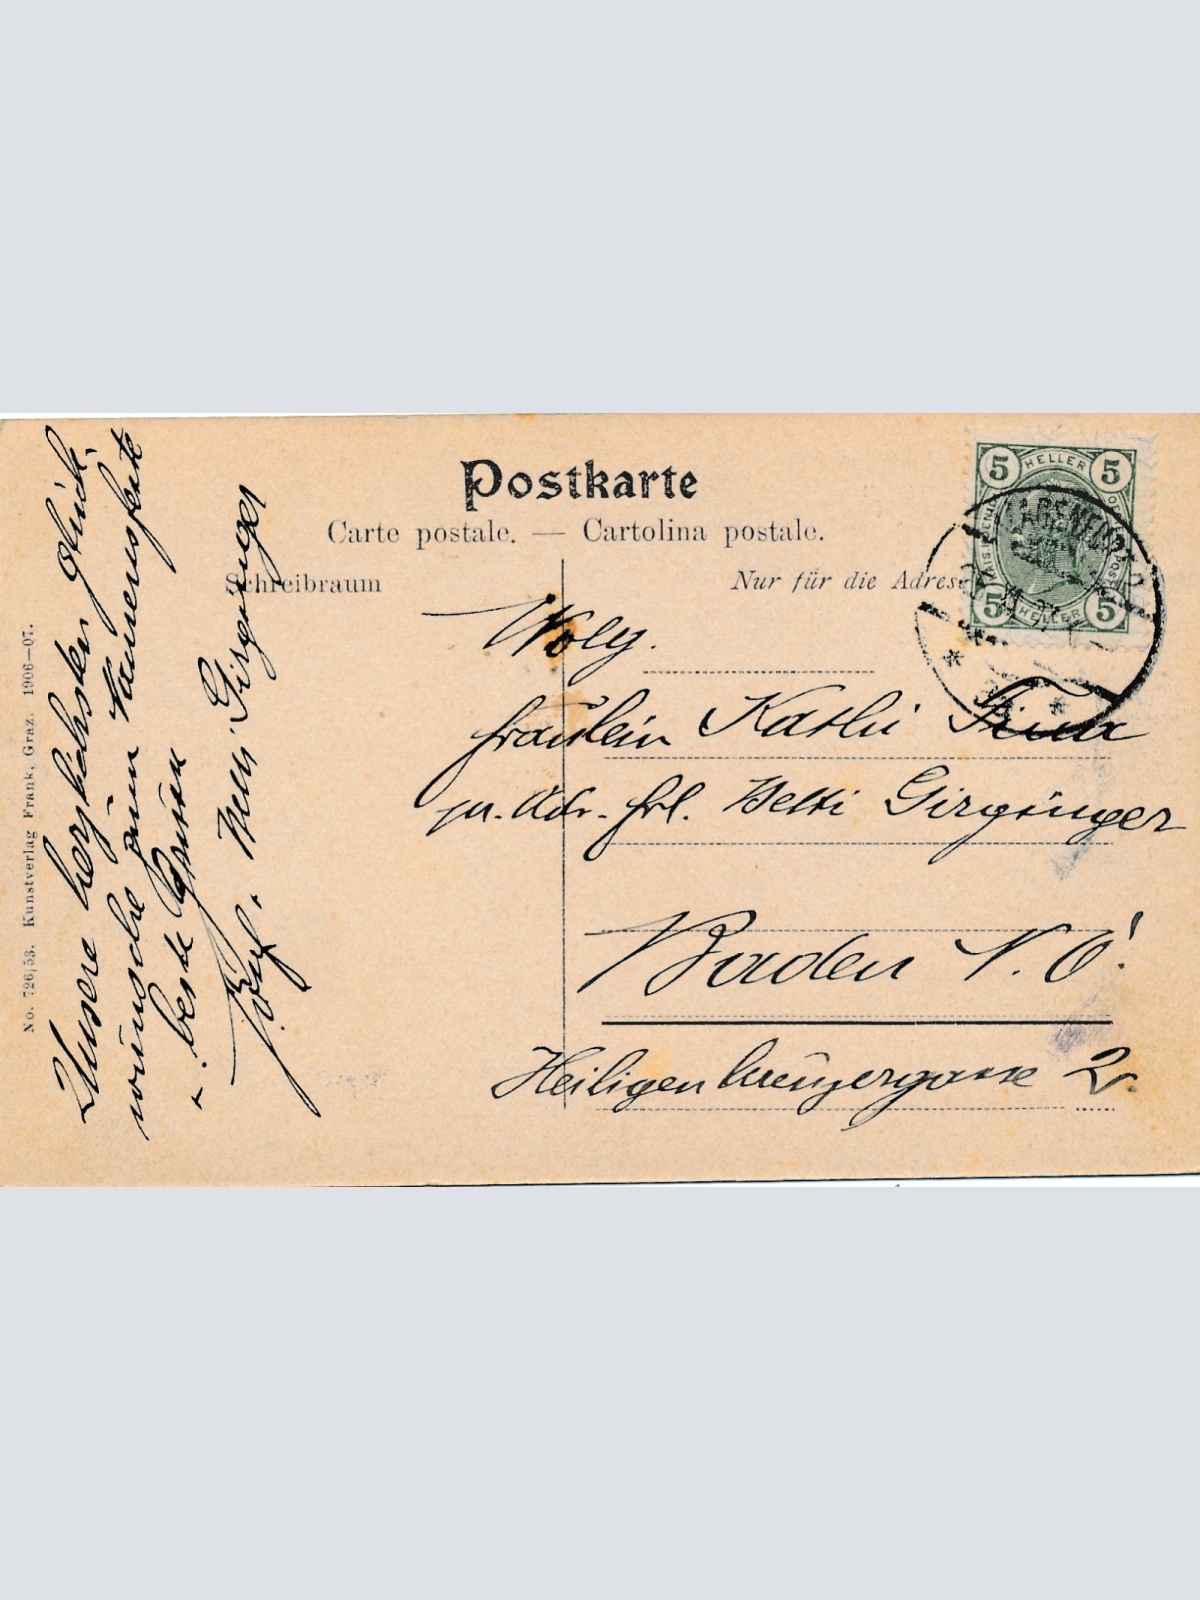 Postkarte
Carte postale. — Cartolina postale.
Schreibraum
Nur für die Adresse
5 HELLER 5
5 HELLER 5
Wolg.
Fräulein Kathi
pr. Adr. Frl. Betti Girzinger
Baden N. Ö.
Heiligenkreuzergasse 2.
Unsere herzlichsten Glück-
wünsche zum Namensfeste
u. beste Grüsse
Josef u. Girzinger
No. 726/53. Kunstverlag Frank, Graz. 1906—07.